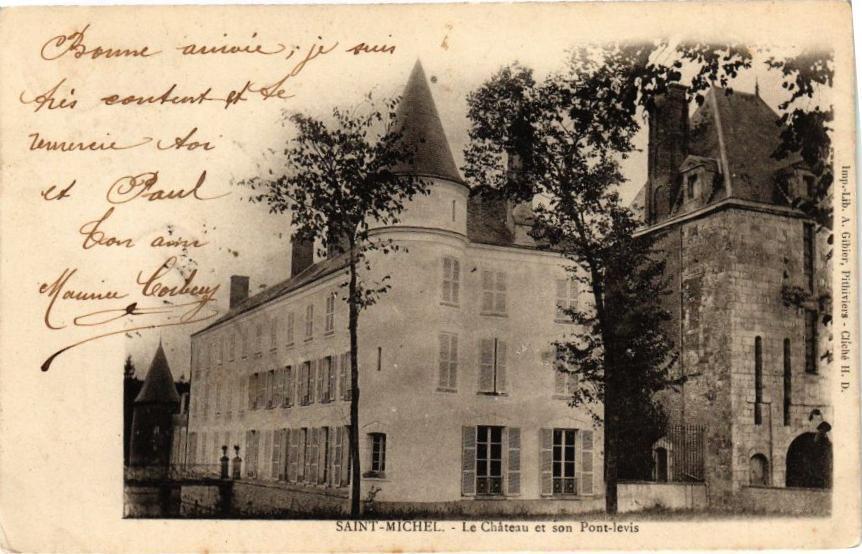 Bonne arrivée, je suis
très content et te
remercie toi
et Paul
Ton ami
Maurice Corbey
Imp.-Lib. A. Gibier, Pithiviers - Cliché H. D.
SAINT-MICHEL. - Le Château et son Pont-levis